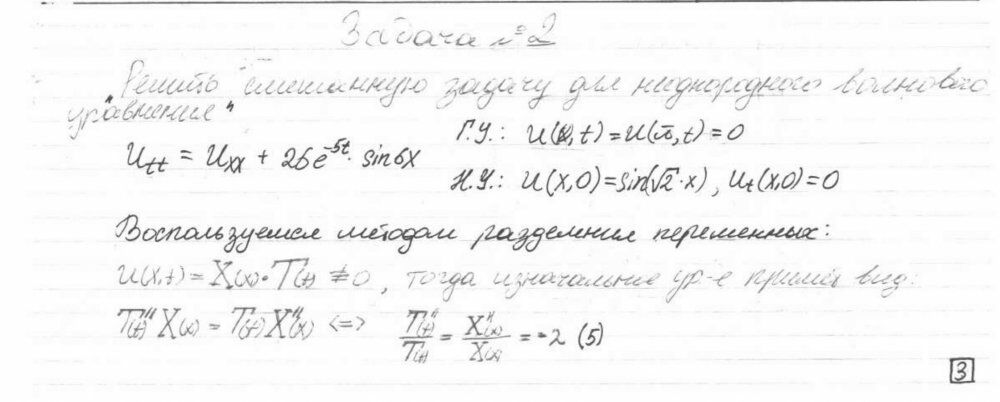 Задача №2
"Решить смешанную задачу для неоднородного волнового
уравнения"
Г.У.: u(0,t) = u(π,t) = 0
Utt = Uxx + 26e^-5t · sin6x
Н.У.: u(x,0) = sin(√2·x), ut(x,0) = 0
Воспользуемся методом разделения переменных:
u(x,t) = X(x)·T(t) ≠ 0, тогда изначальное ур-е примет вид:
T''(t) X(x) = T(t) X''(x) <=> T''(t)/T(t) = X''(x)/X(x) = -λ (5)
3